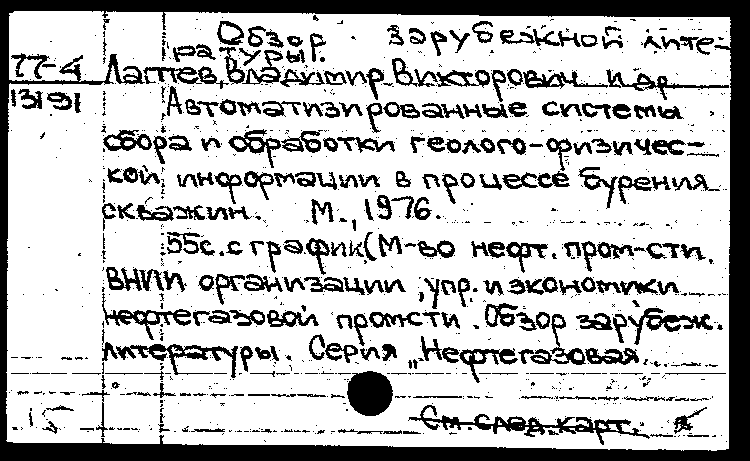 Обзор зарубежной лите-
ратуры.
77-4 Лаптев, Владимир Викторович и др.
13191 Автоматизированные системы
сбора и обработки геолого-физичес-
кой информации в процессе бурения
скважин. М., 1976.
55с. с график (М-во нефт. пром-сти.
ВНИИ организации, упр. и экономики
нефтегазовой промсти. Обзор зарубеж.
литературы. Серия „Нефтегазовая
См. след. карт.